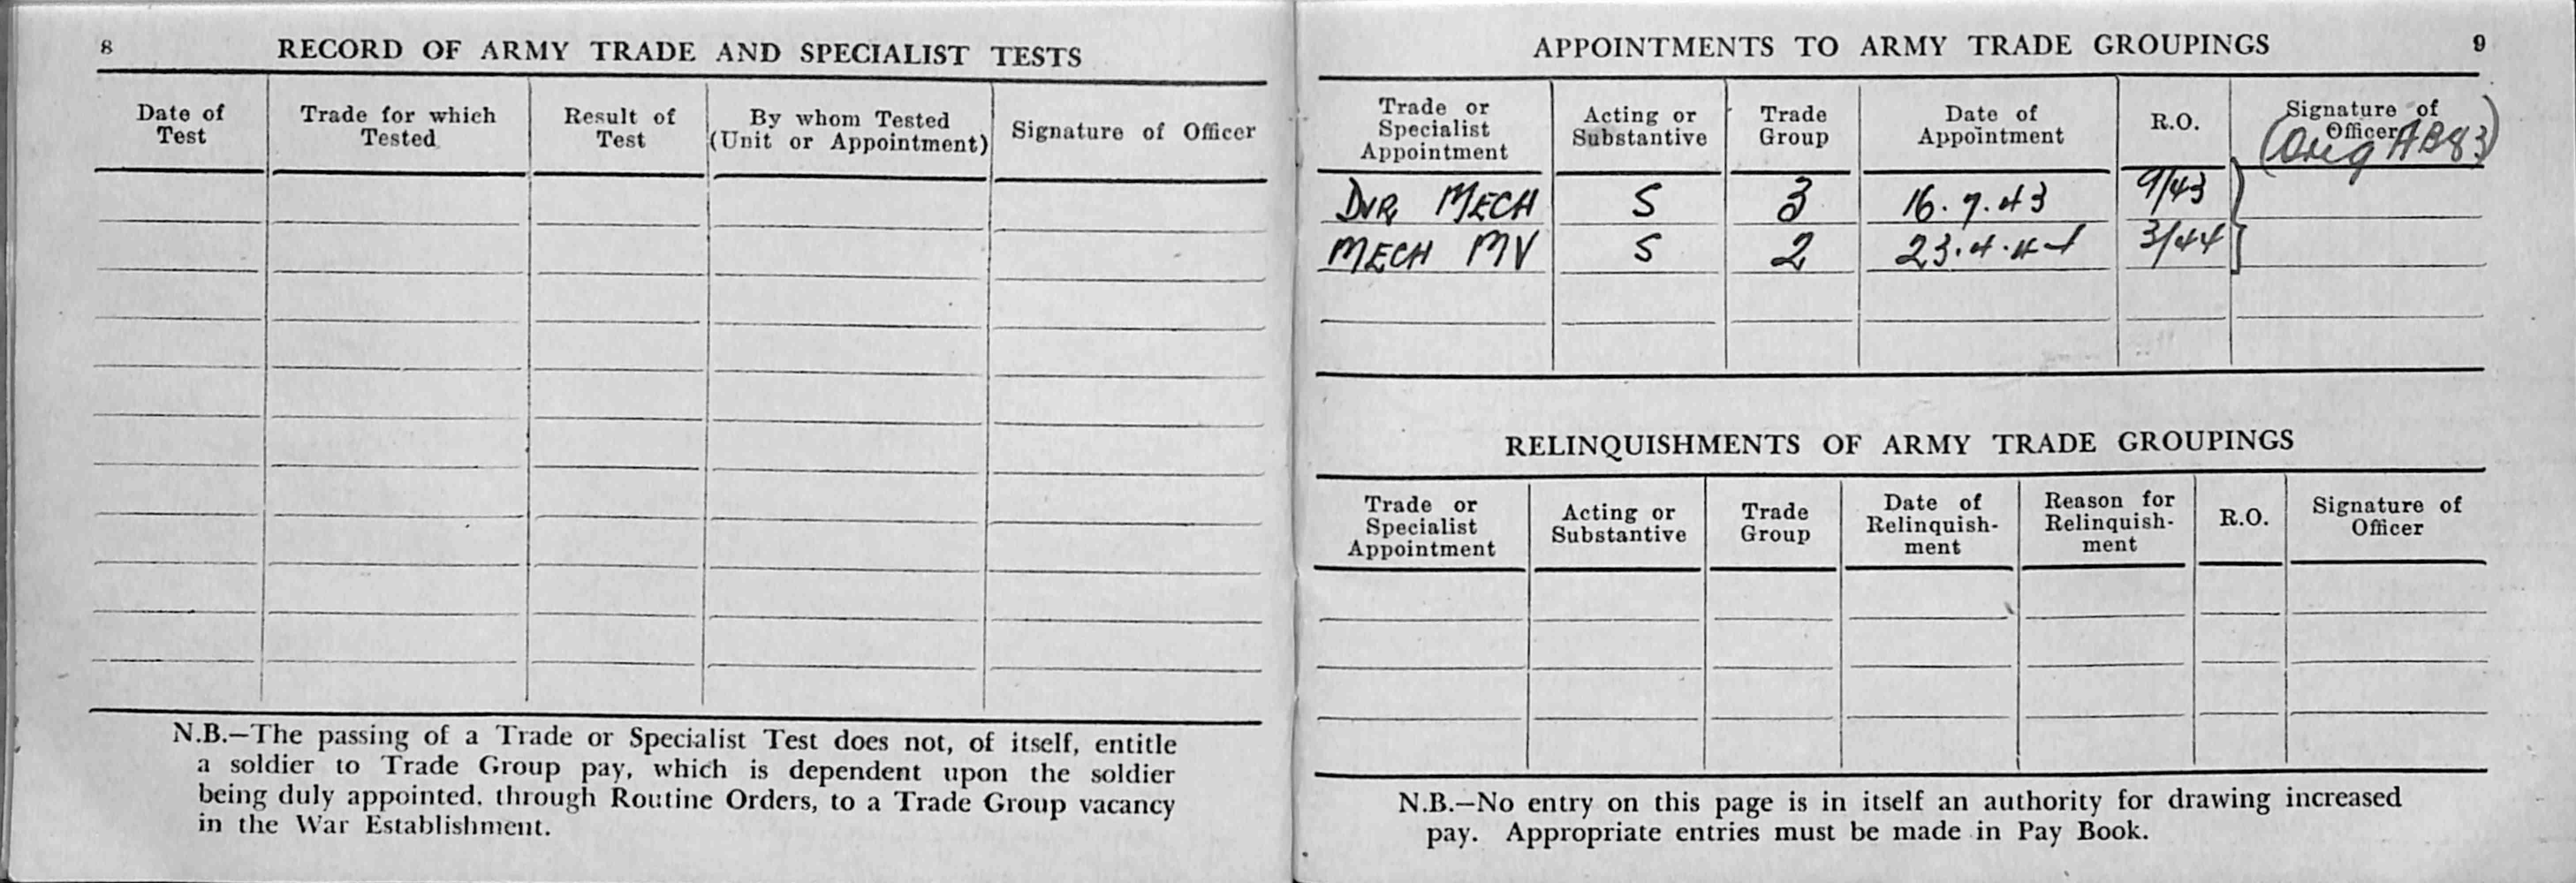 8 RECORD OF ARMY TRADE AND SPECIALIST TESTS
Date of Test
Trade for which Tested
Result of Test
By whom Tested (Unit or Appointment)
Signature of Officer
N.B.—The passing of a Trade or Specialist Test does not, of itself, entitle
a soldier to Trade Group pay, which is dependent upon the soldier
being duly appointed, through Routine Orders, to a Trade Group vacancy
in the War Establishment.
APPOINTMENTS TO ARMY TRADE GROUPINGS 9
Trade or Specialist Appointment
Acting or Substantive
Trade Group
Date of Appointment
R.O.
Signature of Officer
(Orig AB83)
DVR MECH S 3 16.7.43 9/43
MECH MV S 2 23.4.44 3/44
RELINQUISHMENTS OF ARMY TRADE GROUPINGS
Trade or Specialist Appointment
Acting or Substantive
Trade Group
Date of Relinquish-ment
Reason for Relinquish-ment
R.O.
Signature of Officer
N.B.—No entry on this page is in itself an authority for drawing increased
pay. Appropriate entries must be made in Pay Book.